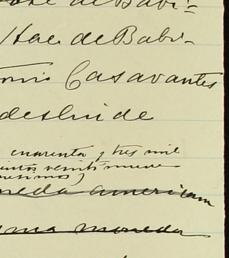 de Babi-
Hac. de Babi-
onio Casavantes
deslinde
cuarenta y tres mil
cientos veinti nueve
neda american
ma moneda